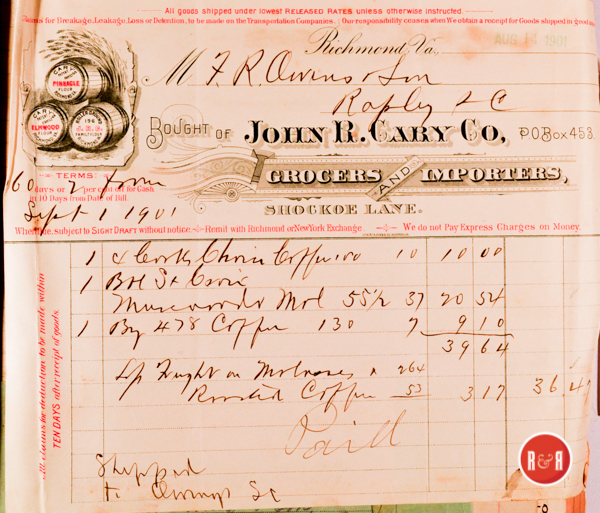 All goods shipped under lowest RELEASED RATES unless otherwise instructed.
Claims for Breakage, Leakage, Loss or Detention, to be made on the Transportation Companies. Our responsibility ceases when We obtain a receipt for Goods shipped in good
Richmond, Va.
AUG 14 1901
M F. R. Owens & Son
Rapley S C
CARY'S
PINNACLE
FLOUR
RICHMOND, VA.
CARY'S
ELMWOOD
FLOUR
196
FAMILY FLOUR
BOUGHT OF JOHN R. CARY CO, P.O. Box 453.
GROCERS AND IMPORTERS,
SHOCKOE LANE.
TERMS:
60 days or 2 per cent off for Cash
in 10 Days from Date of Bill.
Sept 1 1901
When due, subject to SIGHT DRAFT without notice. Remit with Richmond or New York Exchange. We do not pay Express Charges on Money.
All claims for deduction to be made within
TEN DAYS after receipt of goods.
1 Choice Coffee 100 10 10 00
1 Bbl
Muscovado Mol 55½ 37 20 54
1 Bg 478 Coffee 130 7 9 10
39 64
Frught on Molasses 264
Roasted Coffee 53 3 17 36.47
Paid
Shipped
to Owings SC
R&R